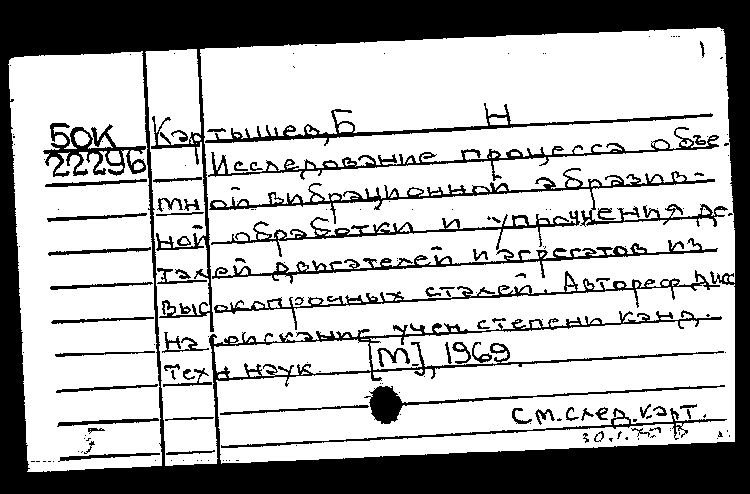 1
БОК Картышев, Б Н
22296 Исследование процесса объе-
мной вибрационной абразив-
ной обработки и упрочнения де-
талей двигателей и агрегатов из
высокопрочных сталей. Автореф дис
на соискание учен. степени канд.
техн наук. [М], 1969.
См. след. карт.